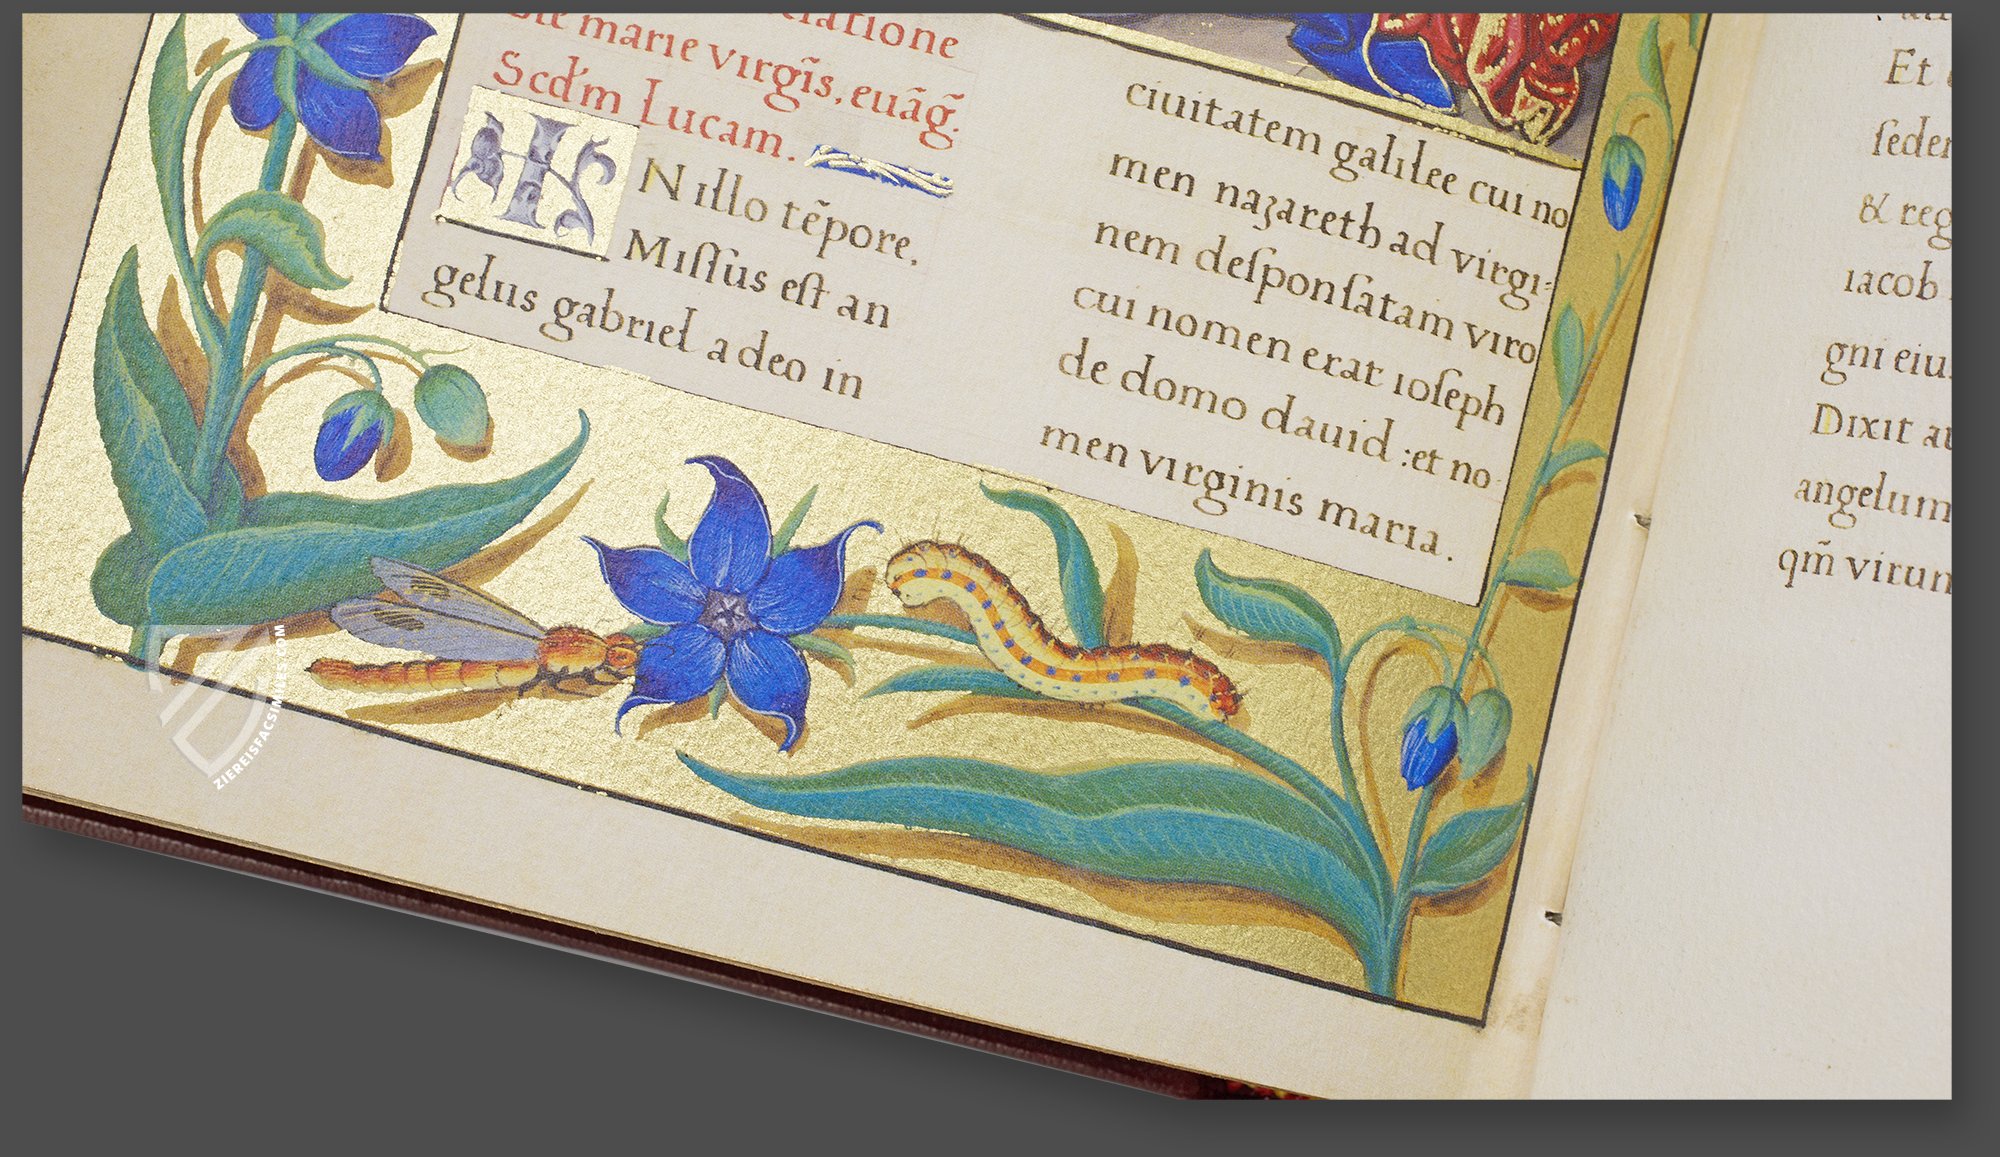 marie virgĩs, euãg̃.
Scdm Lucam.
INillo tẽpore.
Miſſus eſt an
gelus gabriel a deo in
ciuitatem galilee cui no
men nazareth ad virgi:
nem deſponſatam viro
cui nomen erat ioſeph
de domo dauid :et no
men virginis maria.
Et
& reg
iacob
gni eiu
Dixit
angelum
qm̃ virun
ZIEREISFACSIMILES.COM